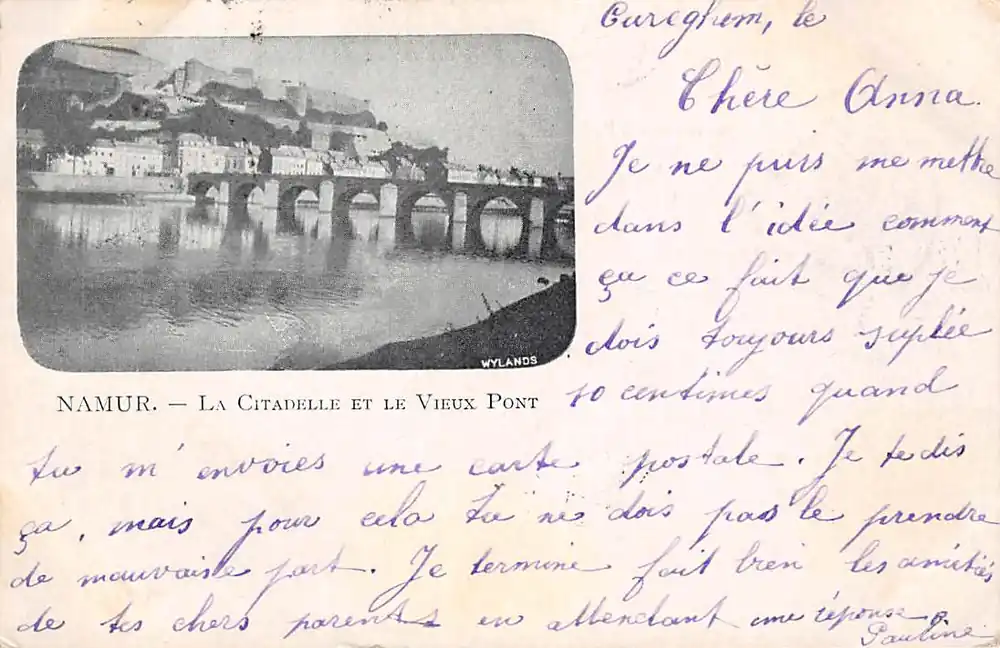 Cureghem, le
Chère Anna.
Je ne puis me mettre
dans l'idée comment
ça ce fait que je
dois toujours suplée
10 centimes quand
WYLANDS
NAMUR. — LA CITADELLE ET LE VIEUX PONT
tu m'envoies une carte postale. Je te dis
ça, mais pour cela tu ne dois pas le prendre
de mauvaise part. Je termine fait bien les amitiés
de tes chers parents en attendant une réponse
Pauline